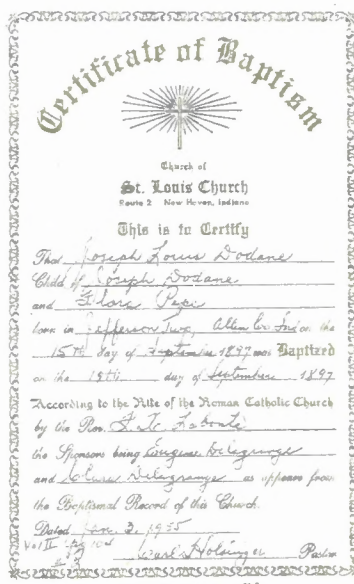 Certificate of Baptism
Church of
St. Louis Church
Route 2 New Haven, Indiana
This is to Certify
That Joseph Louis Dodane
Child of Joseph Dodane
and Flora Pepe
born in Jefferson Twp, Allen Co. Ind on the
15th day of September 1897 was Baptized
on the 19th day of September 1897
According to the Rite of the Roman Catholic Church
by the Rev. F. X. Labonte
the Sponsors being Eugene Delagrange
and Delagrange as appears from
the Baptismal Record of this Church.
Dated Jan. 3, 1955
Vol II
Holsinger Pastor